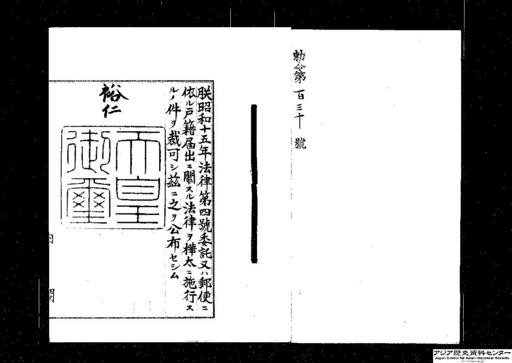 勅令第百三十號
朕昭和十五年法律第四號委託又ハ郵便ニ
依ル戸籍届出ニ關スル法律ヲ樺太ニ施行ス
ルノ件ヲ裁可シ茲ニ之ヲ公布セシム
裕仁
天皇
御璽
アジア歴史資料センター
Japan Center for Asian Historical Records